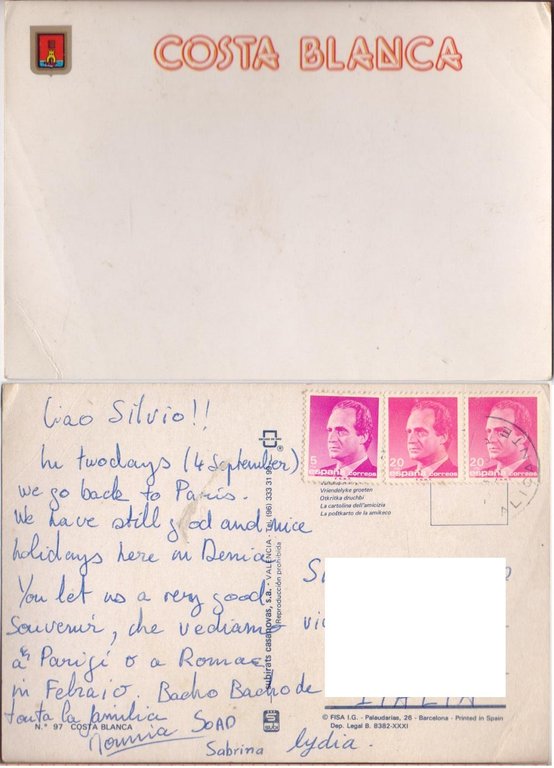 COSTA BLANCA
Ciao Silvio!!
In two days (4 September)
we go back to Paris.
We have still good and nice
holidays here in Denia
You let us a very good
Souvenir, che vediamo
a Parigi o a Roma
in Febraio. Bacho Bacho de
touta la familia
SOAD
Sabrina
lydia.
5
españa correos
20
españa correos
20
españa correos
Vriendelyke groeten
Otkritka druzhbi
La cartolina dell'amicizia
La poŝtkarto de la amikeco
subirats casanovas, s.a. - VALENCIA - Tel. (96) 333 31 9
(Reproducción prohibida
via
ITALIA
N.º 97 COSTA BLANCA
© FISA I.G. - Palaudarias, 26 - Barcelona - Printed in Spain
Dep. Legal B. 8382-XXXI